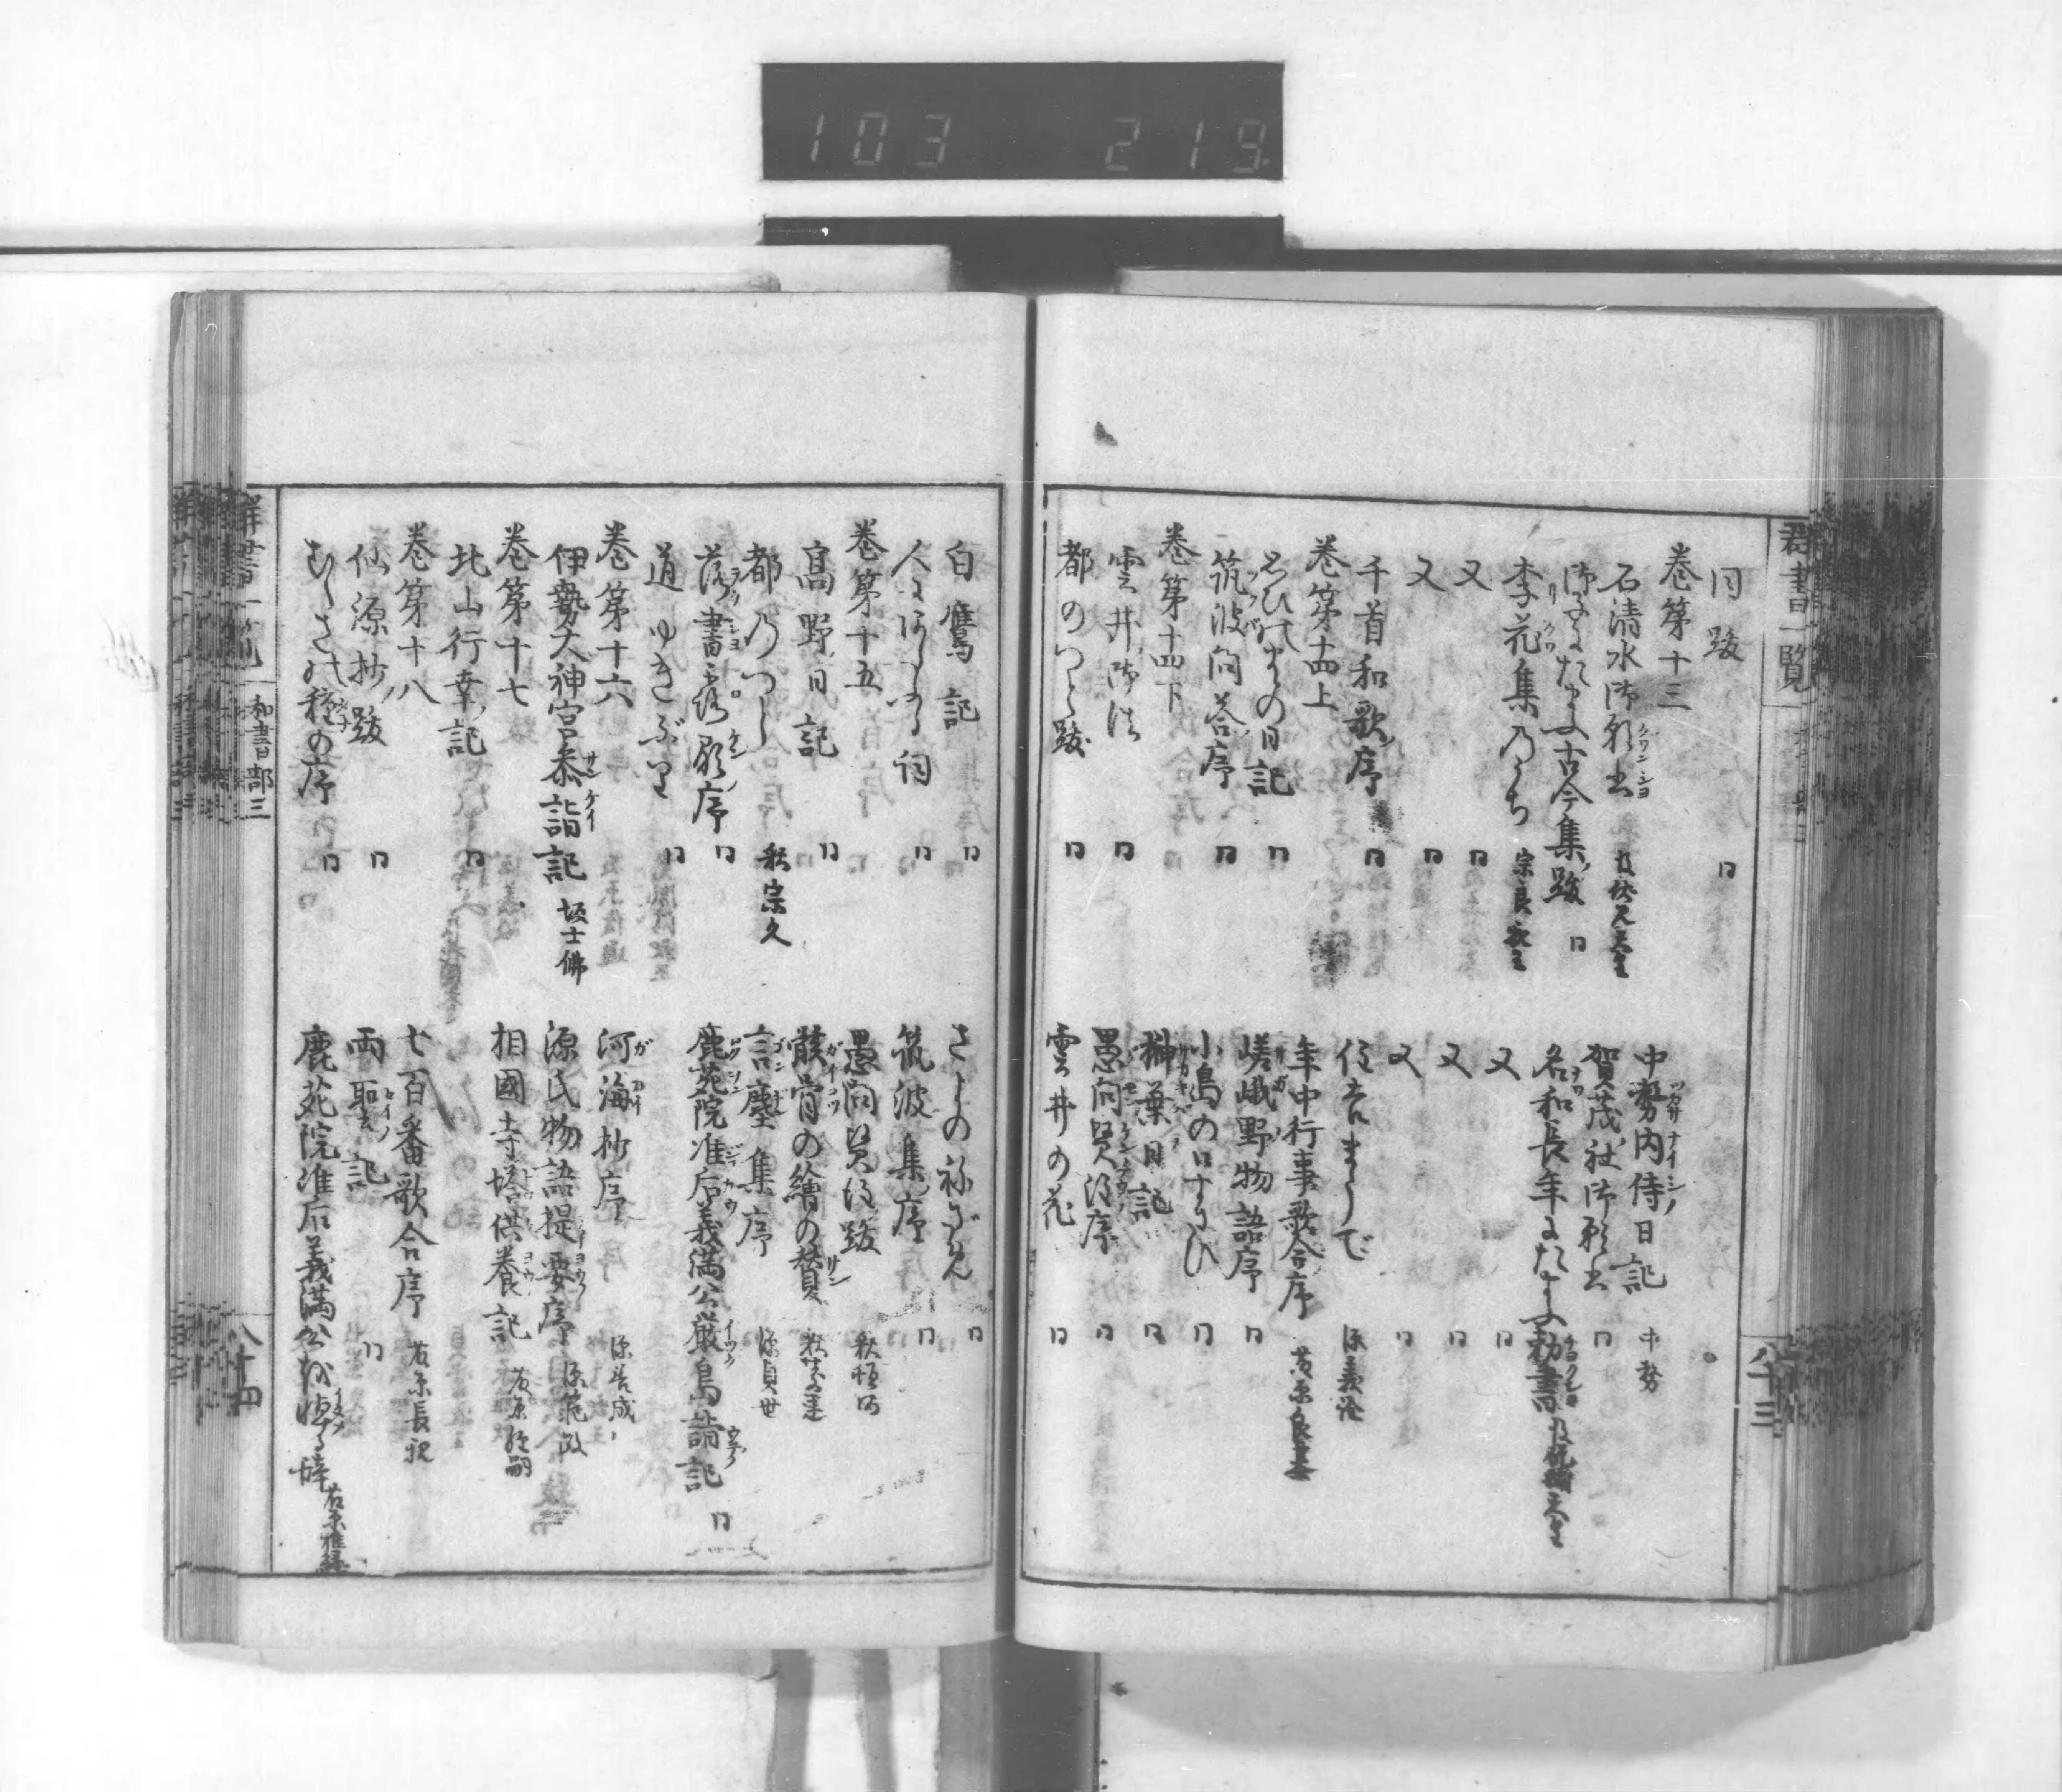 103 219
群書一覧
八十三
同跋 同
巻第十三
中務内侍日記 中務
石清水御願書
賀茂社御願書 同
古今集跋 同
名和長年にたまふ勅書
李花集のうち 宗良親王
又 同
又 同
又 同
又 同
又 同
千首和歌序 同
住吉まうで 源義詮
巻第十四上
年中行事歌合序 藤原良基
おもひのまゝの日記 同
嵯峨野物語序 同
筑波問答序 同
小島の口すさび 同
巻第十四下
榊葉日記 同
雲井御法 同
愚問賢注序 同
都のつと跋 同
雲井の花 同
白鷹記 同
さよのねざめ 同
人にあたふる詞 同
筑波集序 同
巻第十五
愚問賢注跋 釈頓阿
高野日記 同
骸骨の繪の賛
都のつと 釈宗久
言塵集序 源貞世
落書露顕序 同
鹿苑院准后義満公厳島詣記 同
道ゆきぶり 同
巻第十六
河海抄序 源善成
伊勢大神宮参詣記 坂士佛
源氏物語提要序 源範政
巻第十七
相國寺塔供養記 藤原経嗣
北山行幸記 同
巻第十八
七百番歌合序 藤原長親
仙源抄跋 同
両聖記 同
むぐさの種の序 同
鹿苑院准后義満公を悼る辞 藤原雅縁
群書一覧
和書部三
八十四